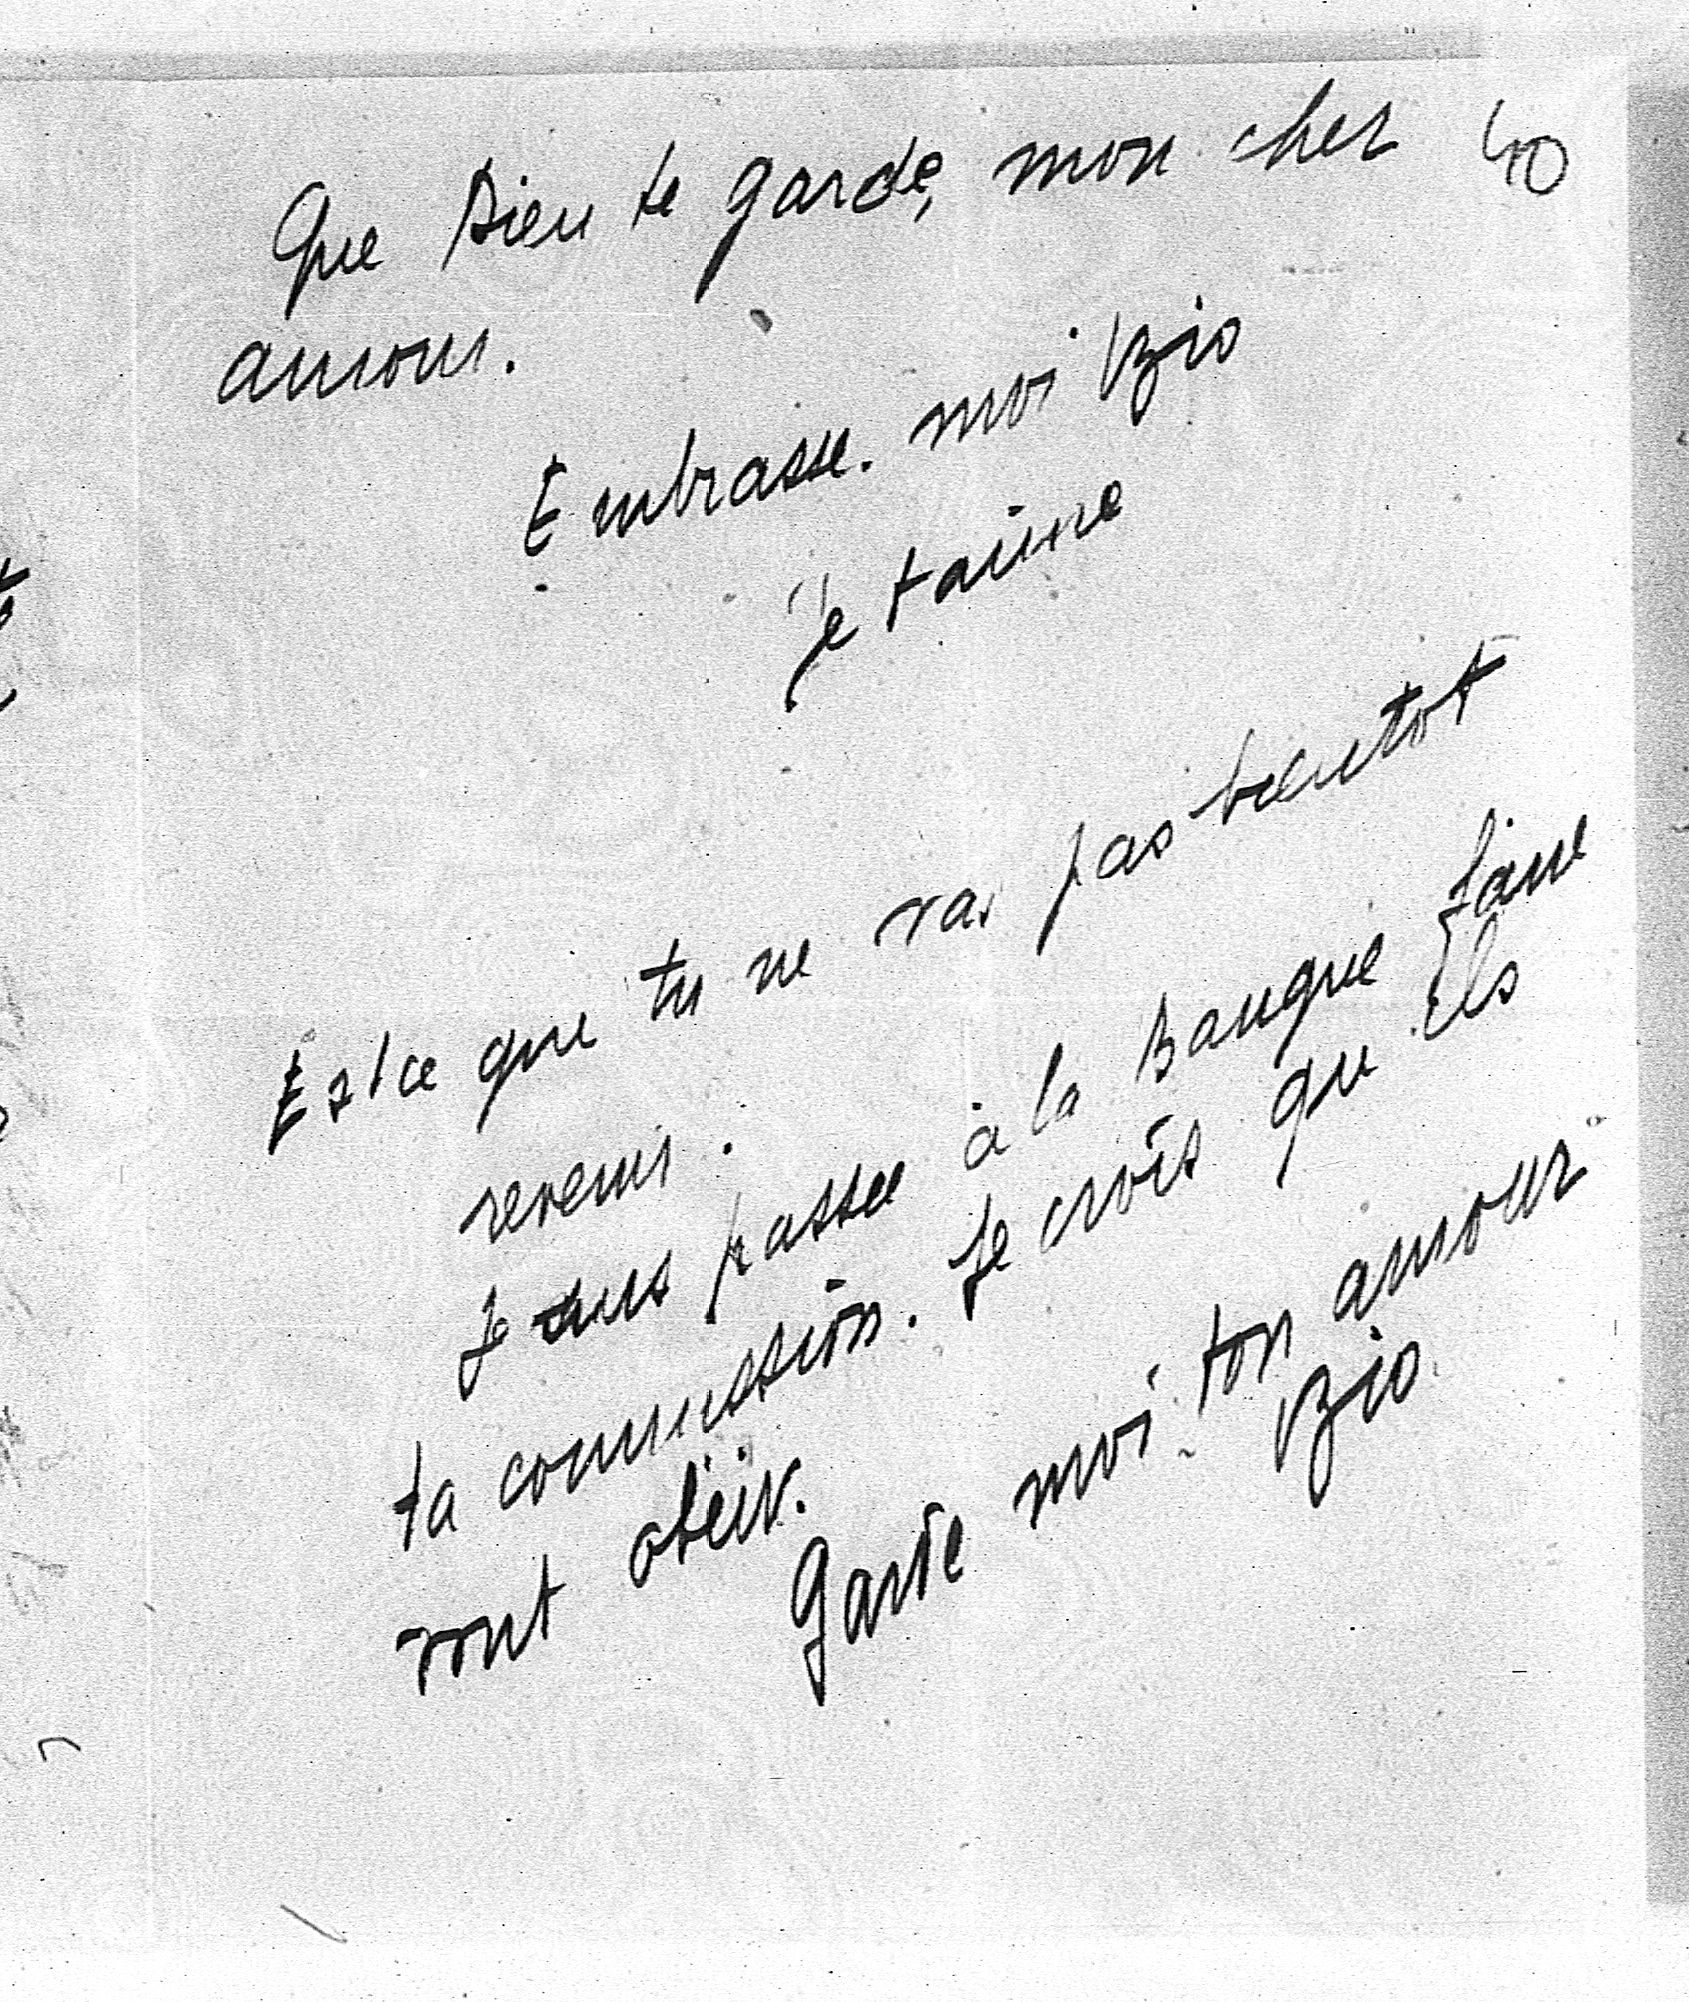 40
Que Dieu te garde, mon cher
amour.
Embrasse. moi Bio
je taime
Est ce que tu ne vas pas bientot
revenir.
Je suis passee à la Banque faire
ta commission. Je crois qu ils
vont obeir.
Garde moi ton amour
Bio